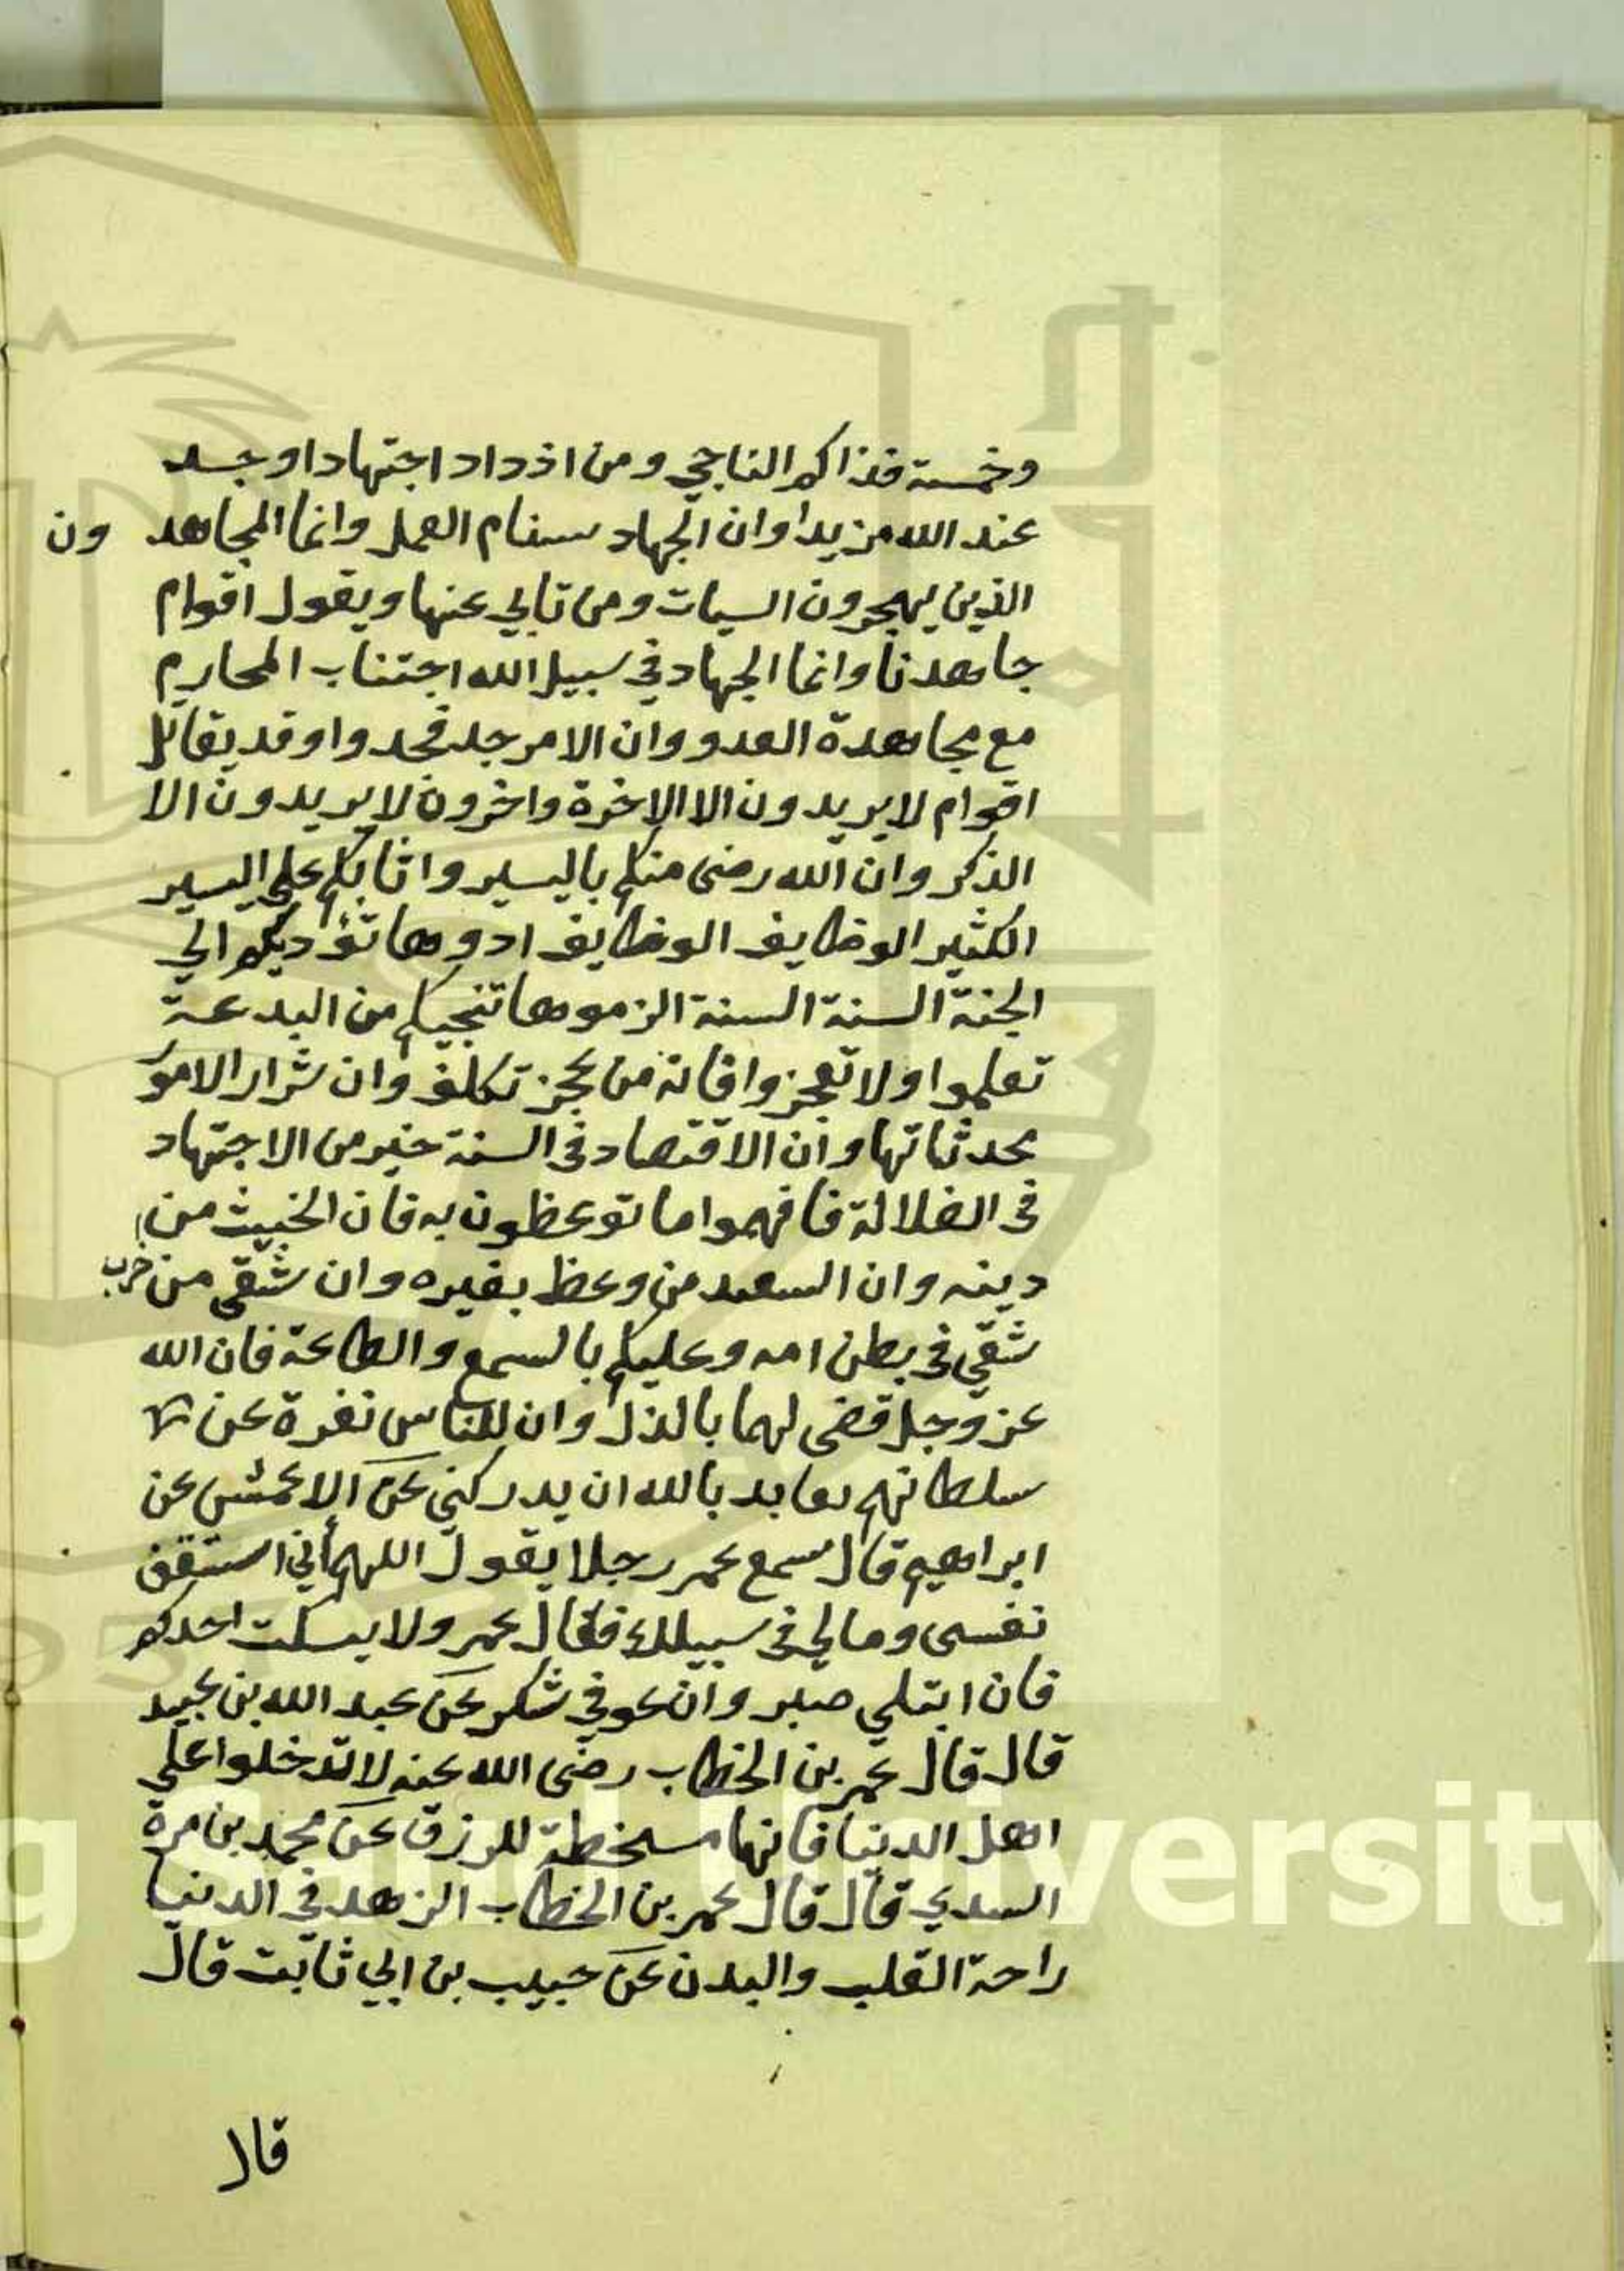 وخمسة فذاكم الناجي ومن ازداد اجتهادا وجد
عند الله مزيدا وان الجهاد سنام العمل وانما المجاهدون
الذين يهجرون السيات ومن تابي عنها ويقول اقوام
جاهدنا وانما الجهاد في سبيل الله اجتناب المحارم
مع مجاهدة العدو وان الامر جد فجدوا وقد يقاتل
اقوام لا يريدون الا الاخرة واخرون لا يريدون الا
الذكر وان الله رضى منكم باليسير واثابكم على اليسير
الكثير الوظايف الوظايف ادوها تؤديكم الي
الجنة السنة السنة الزموها تنجيكم من البدعة
تعلموا ولا تعجزوا فانه من عجز تكلف وان شرار الامور
محدثاتها وان الاقتصاد فى السنة خير من الاجتهاد
فى الضلالة فافهموا ما توعظون به فان الخبيث من
خرب دينه وان السعيد من وعظ بغيره وان شقى من
شقي فى بطن امه وعليكم بالسمع والطاعة فان الله
عز وجل قضى لهما بالذل وان للناس نفرة عن
سلطانهم بالله ان يدركني عن الاعمش عن
ابراهيم قال سمع عمر رجلا يقول اللهم اني استنفق
نفسى ومالي فى سبيلك فقال عمر ولا يسكت احدكم
فان ابتلي صبر وان عوفي شكر عن عبد الله بن عبيد
قال قال عمر بن الخطاب رضى الله عنه لا تدخلوا على
اهل الدنيا فانها مسخطة للرزق عن محمد بن مرة
السدي قال قال عمر بن الخطاب الزهد في الدنيا
راحة القلب والبدن عن حبيب بن ابي ثابت قال
قال
g Saud University